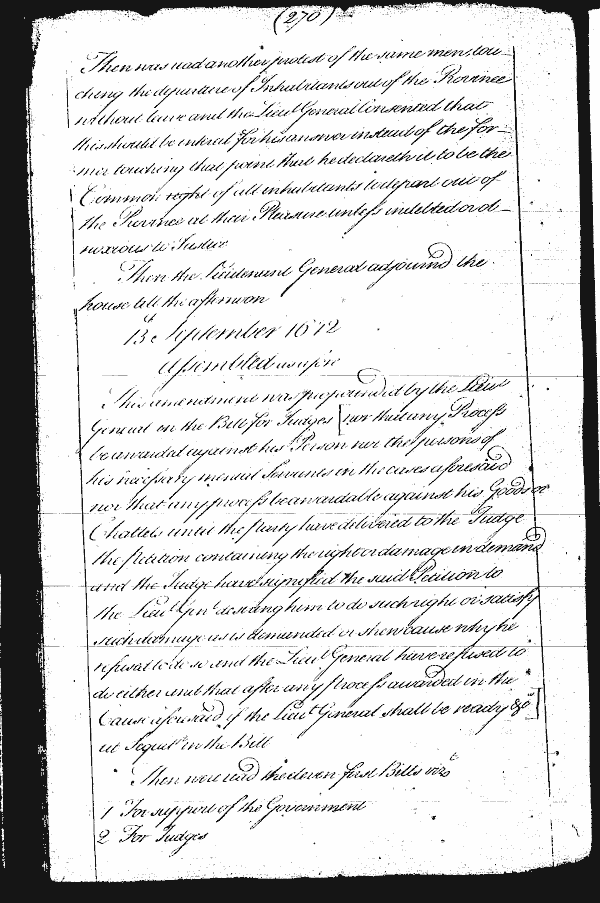 (270)
Then was read another protest of the same men, tou
ching the departure of Inhabitants out of the Province
without leave and the Lieut General Consented that
this should be entered for his answer instead of the for-
mer touching that point that he declareth it to be the
Common right of all inhabitants to depart out of
the Province at their Pleasure unless indebted or ob-
noxious to Justice
Then the Lieutenant General adjourned the
house till the afternoon
13 September 1642
Assembled as afore
This amendment was propounded by the Lieut
General in the Bill for Judges [nor that any Process
be awarded against his Person nor the persons of
his necessary menial Servants in the cases aforesaid
nor that any process be awardable against his Goods or
Chattels until the party have delivered to the Judge
the petition containing the right or damage in demand
and the Judge have signified the said Petition to
the Lieut Genl desiring him to do such right or satisfy
such damage as is demanded or shew cause why he
refuseth to do so and the Lieut General have refused to
do either and that after any process awarded in the
Cause aforesaid if the Lieut General shall be ready &c]
ut Sequitr in the Bill
Then were read the eleven first Bills vizt
1 For support of the Government
2 For Judges